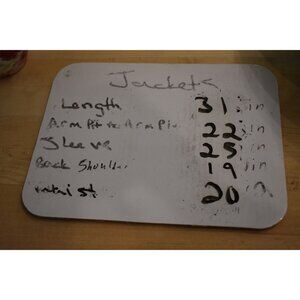 Jackets
Length 31 in
Arm Pit to Arm Pit 22 in
Sleeve 25 in
Back Shoulder 19 in
waist 20 in